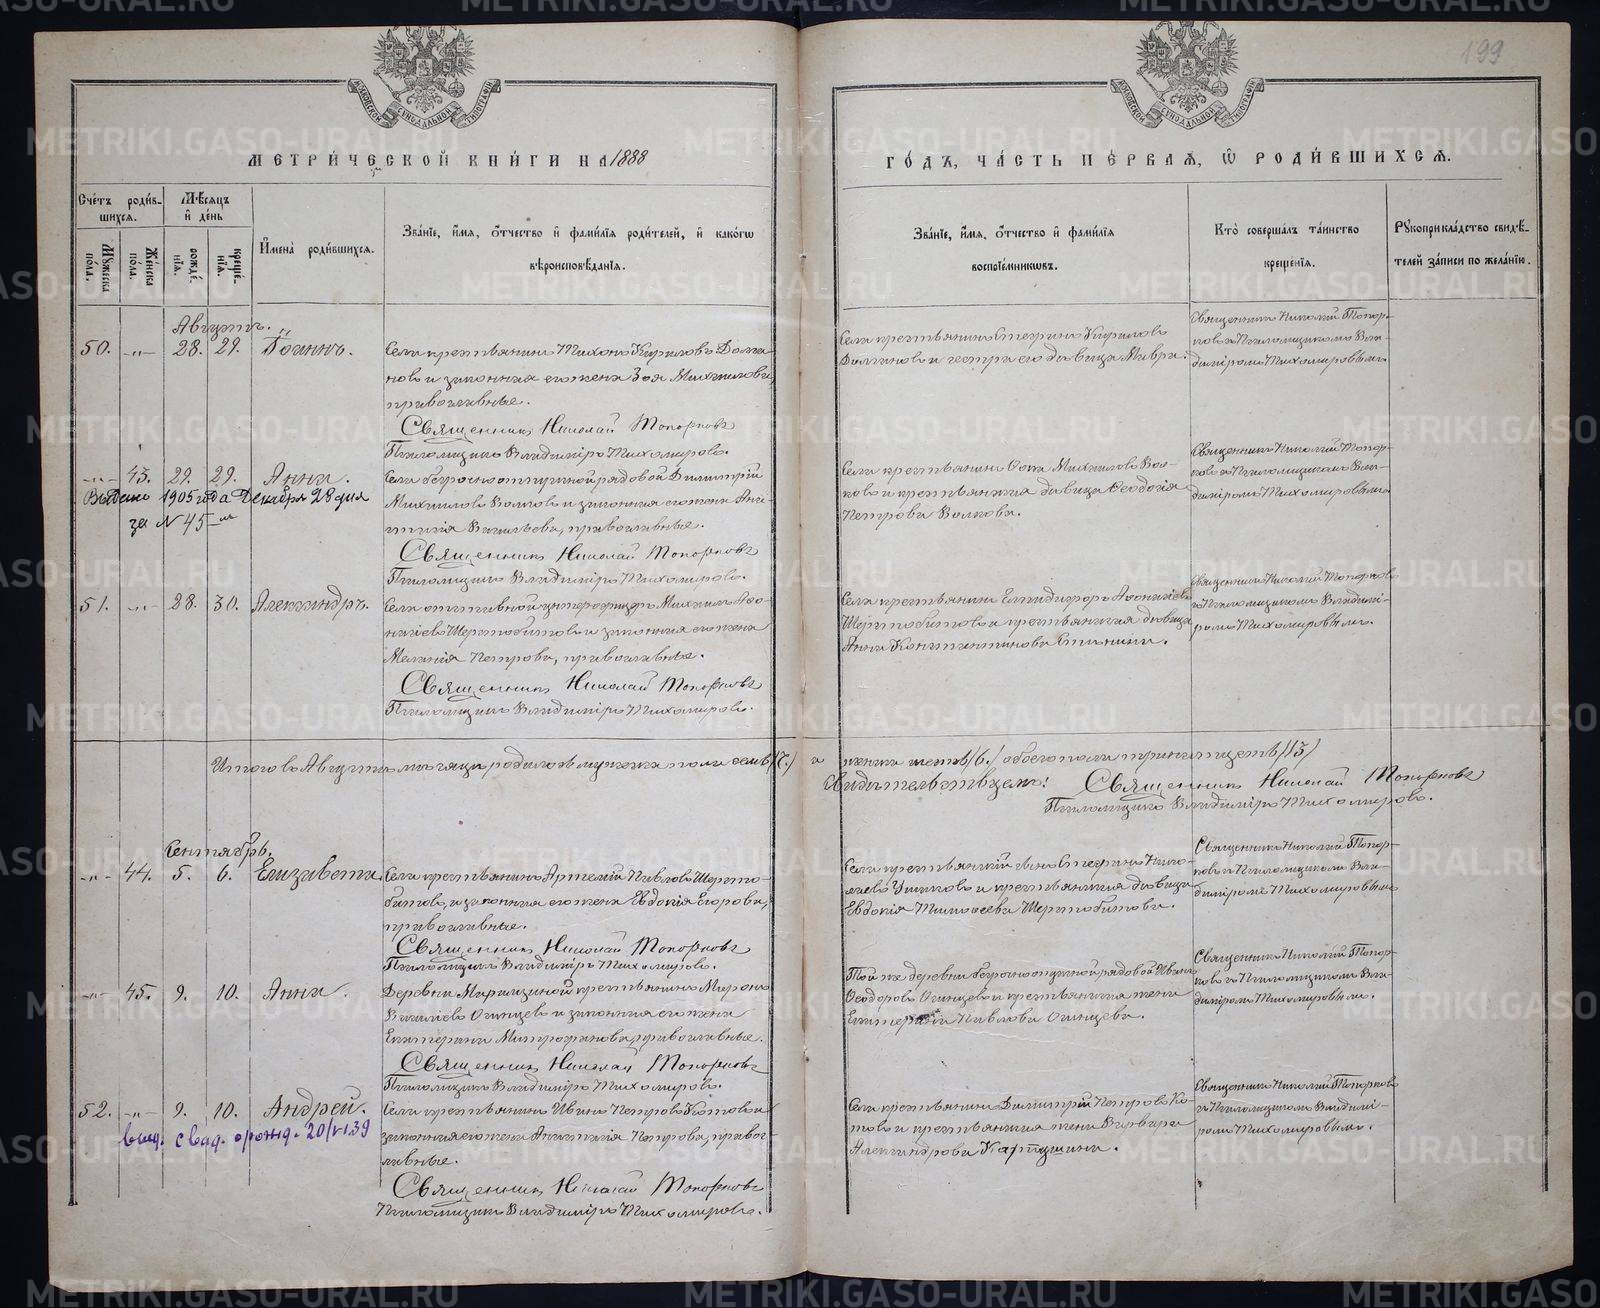 199
МОСКОВСКОЙ СѴНОДАЛЬНОЙ ТИПОГРАФІИ
МОСКОВСКОЙ СѴНОДАЛЬНОЙ ТИПОГРАФІИ
МЕТРИ́ЧЕСКОЙ КНИ́ГИ НА 1888
ГО́ДЪ, ЧА́СТЬ ПЕ́РВАѦ, Ѡ РОДИ́ВШИХСѦ.
Сче́тъ роди́в-
шихся.
Мѣ́сяцъ
и де́нь
Му́жеска по́ла.
Же́нска по́ла.
рожде́нія.
креще́нія.
Имена̀ роди́вшихся.
Зва́ніе, и́мя, о́тчество и фами́лія роди́телей, и како́гѡ
вѣроисповѣ́данія.
Зва́ніе, и́мя, о́тчество и фами́лія
воспріе́мниковъ.
Кто̀ соверша́лъ та́инство
креще́нія.
Рукоприкла́дство свидѣ́-
телей за́писи по жела́нію.
Августъ.
50. -"- 28. 29. Іоаннъ.
Села крестьянинъ Тихонъ Кириловъ Долга-
новъ и законная его жена Зоя Михаилова,
православные.
Священникъ Николай Топорковъ
Псаломщикъ Владиміръ Тихомировъ.
Села крестьянинъ Стефанъ Кириловъ
Долгановъ и сестра его девица Мавра.
Священникъ Николай Топор-
ковъ и Псаломщикомъ Вла-
диміромъ Тихомировымъ.
-"- 43. 29. 29. Анна.
Выдано 1905 года Декабря 28 дня
за № 45-м
Села безсрочноотпускной рядовой Димитрій
Михаиловъ Волковъ и законная его жена Ана-
стасія Васильева, православные.
Священникъ Николай Топорковъ
Псаломщикъ Владиміръ Тихомировъ.
Села крестьянинъ Михаиловъ Вол-
ковъ и крестьянская девица Феодосія
Петрова Волкова.
Священникъ Николай Топор-
ковъ и Псаломщикомъ Вла-
диміромъ Тихомировымъ
51. -"- 28. 30. Александръ.
Села отставной унтерофицеръ Михаилъ Афо-
насіевъ Шерстобитовъ и законная его жена
Меланія Петрова, православные.
Священникъ Николай Топорковъ
Псаломщикъ Владиміръ Тихомировъ.
Села крестьянинъ Елпидифоръ Афонасіевъ
Шерстобитовъ и крестьянская девица
Анна Константинова
Священникъ Николай Топорковъ
и Псаломщикомъ Владимі-
ромъ Тихомировымъ.
Итого въ Августе месяце родилось мужеска пола семь /7./ а женска шесть /6./ обоего пола тринадцать /13/
Свидетельствуемъ: Священникъ Николай Топорковъ
Псаломщикъ Владиміръ Тихомировъ.
Сентябрь.
-"- 44. 5. 6. Елизавета.
Села крестьянинъ Артемій Павловъ Шерсто-
битовъ, и законная его жена Евдокія Егорова,
православные.
Священникъ Николай Топорковъ
Псаломщикъ Владиміръ Тихомировъ.
Села крестьянскій сынъ Стефанъ Нико-
лаевъ Ушковъ и крестьянская девица
Евдокія Тимофеева Шерстобитова.
Священникъ Николай Топор-
ковъ и Псаломщикомъ Вла-
диміромъ Тихомировымъ
-"- 45. 9. 10. Анна.
Деревни крестьянинъ Миронъ
Василіевъ и законная его жена
Екатерина Митрофанова, православные.
Священникъ Николай Топорковъ
Псаломщикъ Владиміръ Тихомировъ.
Той же деревни безсрочноотпускной рядовой Иванъ
Феодоровъ и крестьянская жена
Екатерина Павлова
Священникъ Николай Топор-
ковъ и Псаломщикомъ Вла-
диміромъ Тихомировымъ.
52. -"- 9. 10. Андрей.
выд. свид. о рожд. 20/VI.39
Села крестьянинъ Иванъ Петровъ Котовъ и
законная его жена Анастасія Петрова, правос-
лавные.
Священникъ Николай Топорковъ
Псаломщикъ Владиміръ Тихомировъ.
Села крестьянинъ Димитрій Петровъ Ко-
товъ и крестьянская жена Варвара
Александрова Карпушина.
Священникъ Николай Топорковъ
и Псаломщикомъ Владимі-
ромъ Тихомировымъ.
METRIKI.GASO-URAL.RU